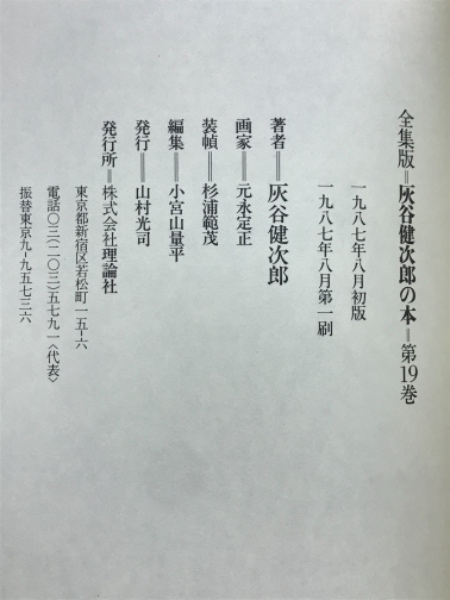 全集版＝灰谷健次郎の本＝第19巻
一九八七年八月初版
一九八七年八月第一刷
著者＝灰谷健次郎
画家＝元永定正
装幀＝杉浦範茂
編集＝小宮山量平
発行＝山村光司
発行所＝株式会社理論社
東京都新宿区若松町一五-六
電話〇三(二〇三)五七九一〈代表〉
振替東京九-九五七三六